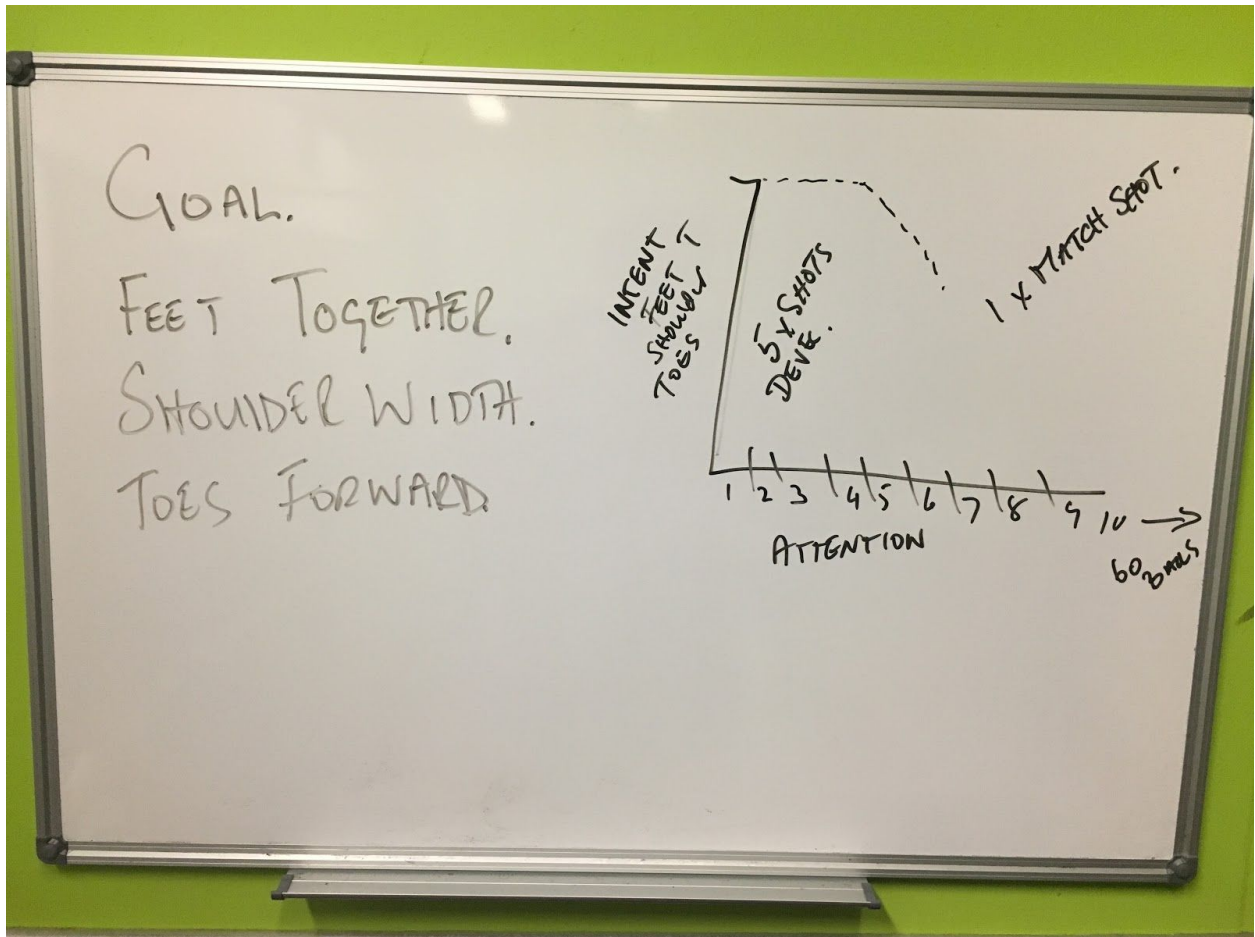 GOAL.
FEET TOGETHER.
SHOULDER WIDTH.
TOES FORWARD
INTENT
FEET T
SHOULW
TOES
5 x SHOTS
DEVE.
1 x MATCH SHOT.
1 2 3 4 5 6 7 8 9 10
ATTENTION
60 BALLS